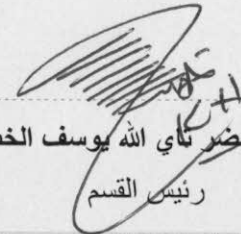 ضر تاي الله يوسف الخض
رئيس القسم